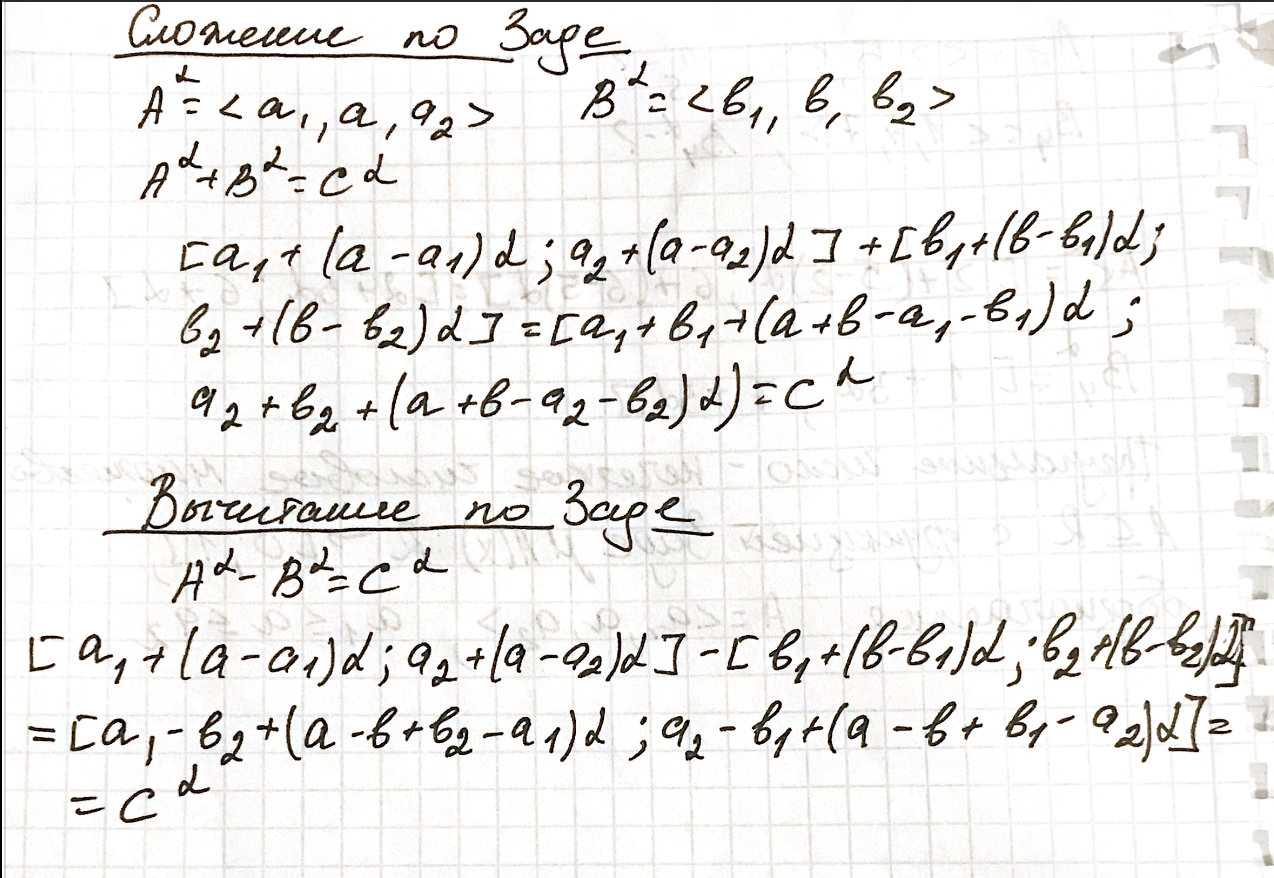 Сложение по Заде
A^α = <a₁, a, a₂> B^α = <в₁, в, в₂>
A^α + B^α = C^α
[a₁ + (a - a₁)α ; a₂ + (a - a₂)α] + [в₁ + (в - в₁)α ;
в₂ + (в - в₂)α] = [a₁ + в₁ + (a + в - a₁ - в₁)α ;
a₂ + в₂ + (a + в - a₂ - в₂)α) = C^α
Вычитание по Заде
A^α - B^α = C^α
[a₁ + (a - a₁)α ; a₂ + (a - a₂)α] - [в₁ + (в - в₁)α ; в₂ + (в - в₂)α]
= [a₁ - в₂ + (a - в + в₂ - a₁)α ; a₂ - в₁ + (a - в + в₁ - a₂)α] =
= C^α